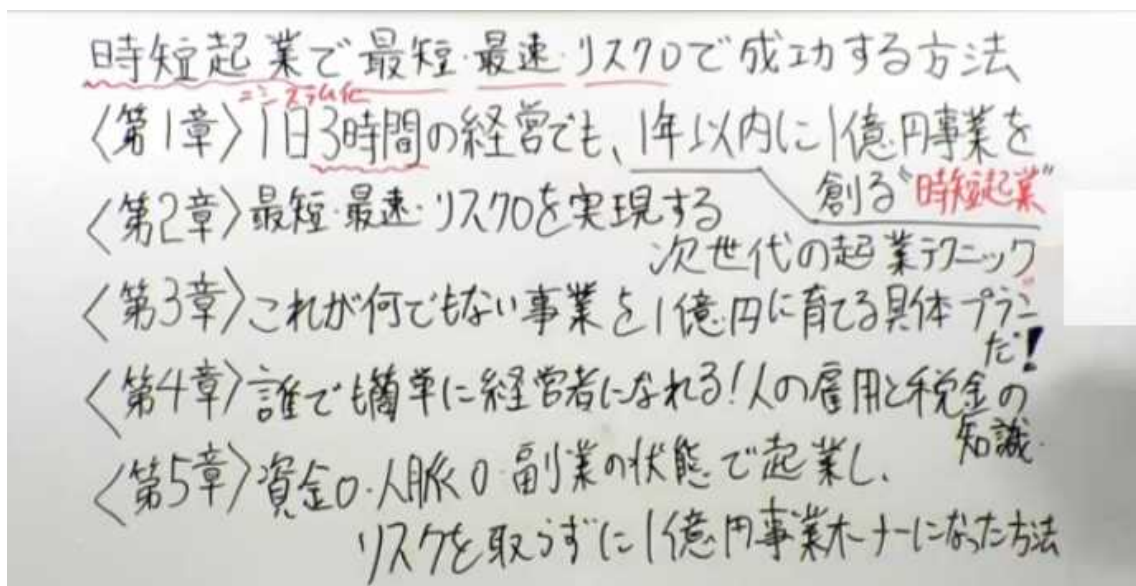 時短起業で最短・最速・リスク0で成功する方法
=システム化
〈第1章〉1日3時間の経営でも、1年以内に1億円事業を
創る"時短起業"
〈第2章〉最短・最速・リスク0を実現する
次世代の起業テクニック
〈第3章〉これが何でもない事業を1億円に育てる具体プラン
だ!
〈第4章〉誰でも簡単に経営者になれる!人の雇用と税金の
知識
〈第5章〉資金0・人脈0・副業の状態で起業し、
リスクを取らずに1億円事業オーナーになった方法